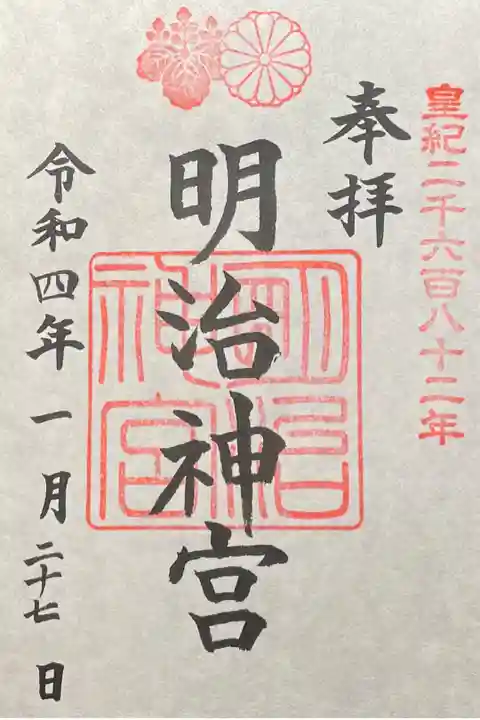 皇紀二千六百八十二年
奉拝
明治神宮
明治神宮
令和四年一月二十七日